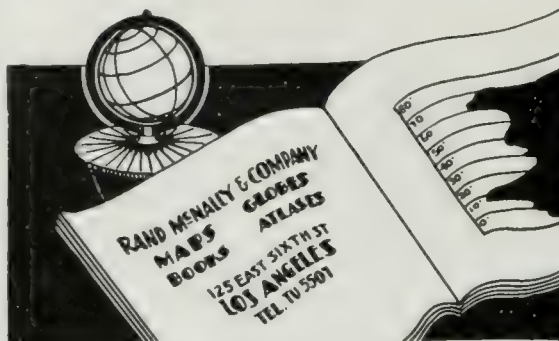 RAND MCNALLY & COMPANY
MAPS GLOBES
BOOKS ATLASES
125 EAST SIXTH ST
LOS ANGELES
TEL. TU 5501